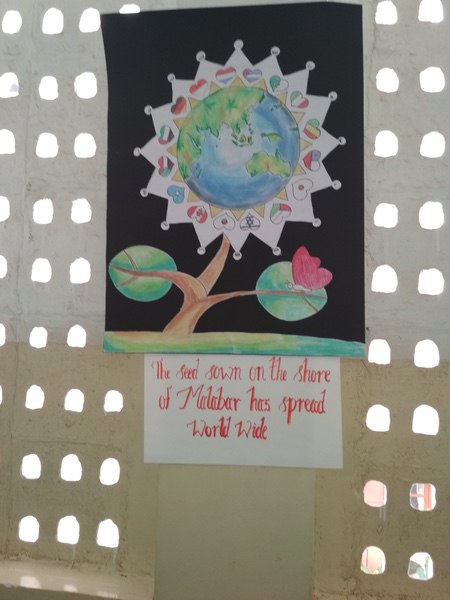 The seed sown on the shore
of Malabar has spread
World Wide